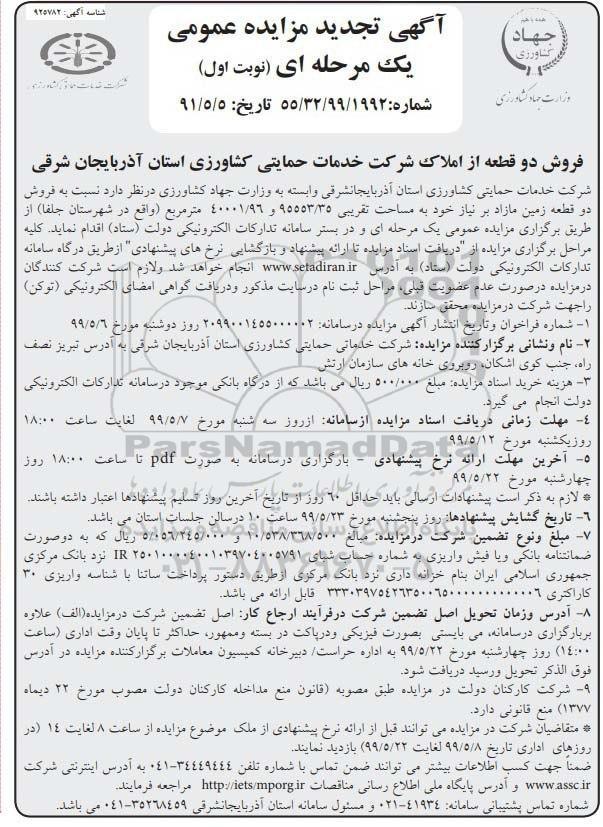 شناسه آگهی: ۹۲۵۷۸۲
همه با هم
جهاد
کشاورزی
وزارت جهاد کشاورزی
شرکت خدمات حمایتی کشاورزی
آگهی تجدید مزایده عمومی
یک مرحله ای (نوبت اول)
شماره:۵۵/۳۲/۹۹/۱۹۹۲ تاریخ: ۹۱/۵/۵
فروش دو قطعه از املاک شرکت خدمات حمایتی کشاورزی استان آذربایجان شرقی
شرکت خدمات حمایتی کشاورزی استان آذربایجانشرقی وابسته به وزارت جهاد کشاورزی درنظر دارد نسبت به فروش
دو قطعه زمین مازاد بر نیاز خود به مساحت تقریبی ۹۵۵۵۳/۳۵ و ۴۰۰۰۱/۹۶ مترمربع (واقع در شهرستان جلفا) از
طریق برگزاری مزایده عمومی یک مرحله ای و در بستر سامانه تدارکات الکترونیکی دولت (ستاد) اقدام نماید. کلیه
مراحل برگزاری مزایده از "دریافت اسناد مزایده تا ارائه پیشنهاد و بازگشایی نرخ های پیشنهادی" ازطریق درگاه سامانه
تدارکات الکترونیکی دولت (ستاد) به آدرس www.setadiran.ir انجام خواهد شد ولازم است شرکت کنندگان
درمزایده درصورت عدم عضویت قبلی، مراحل ثبت نام درسایت مذکور ودریافت گواهی امضای الکترونیکی (توکن)
راجهت شرکت درمزایده محقق سازند.
۱- شماره فراخوان وتاریخ انتشار آگهی مزایده درسامانه: ۲۰۹۹۰۰۱۴۵۵۰۰۰۰۰۲ روز دوشنبه مورخ ۹۹/۵/۶
۲- نام ونشانی برگزارکننده مزایده: شرکت خدماتی حمایتی کشاورزی استان آذربایجان شرقی به آدرس تبریز نصف
راه، جنب کوی اشکان، روبروی خانه های سازمان ارتش
۳- هزینه خرید اسناد مزایده: مبلغ ۵۰۰/۰۰۰ ریال می باشد که از درگاه بانکی موجود درسامانه تدارکات الکترونیکی
دولت انجام می گیرد.
۴- مهلت زمانی دریافت اسناد مزایده ازسامانه: ازروز سه شنبه مورخ ۹۹/۵/۷ لغایت ساعت ۱۸:۰۰
روزیکشنبه مورخ ۹۹/۵/۱۲
۵- آخرین مهلت ارائه نرخ پیشنهادی – بارگزاری درسامانه به صورت pdf تا ساعت ۱۸:۰۰ روز
چهارشنبه مورخ ۹۹/۵/۲۲
* لازم به ذکر است پیشنهادات ارسالی باید حداقل ۶۰ روز از تاریخ آخرین روز تسلیم پیشنهادها اعتبار داشته باشند.
۶- تاریخ گشایش پیشنهادها: روز پنجشنبه مورخ ۹۹/۵/۲۳ ساعت ۱۰ درسالن جلسات استان می باشد.
۷- مبلغ ونوع تضمین شرکت درمزایده: مبلغ ۱۰/۵۳۸/۳۶۸/۵۰۰ و ۵/۰۵۶/۲۴۵/۰۰۰ ریال که به دوصورت
ضمانتنامه بانکی ویا فیش واریزی به شماره حساب شبای IR ۲۵۰۱۰۰۰۰۴۰۰۱۰۳۹۷۰۴۰۰۵۷۹۱ نزد بانک مرکزی
جمهوری اسلامی ایران بنام خزانه داری نزد بانک مرکزی ازطریق دستور پرداخت ساتنا با شناسه واریزی ۳۰
کاراکتری ۳۳۳۰۳۹۷۵۴۲۶۳۵۰۰۶۵۰۰۰۰۰۰۰۰۰۰۰۰۶ قابل ارائه می باشد.
۸- آدرس وزمان تحویل اصل تضمین شرکت درفرآیند ارجاع کار: اصل تضمین شرکت درمزایده(الف) علاوه
بربارگزاری درسامانه، می بایستی بصورت فیزیکی ودرپاکت در بسته وممهور، حداکثر تا پایان وقت اداری (ساعت
۱۴:۰۰) روز چهارشنبه مورخ ۹۹/۵/۲۲ به اداره حراست/ دبیرخانه کمیسیون معاملات برگزارکننده مزایده در آدرس
فوق الذکر تحویل ورسید دریافت شود.
۹- شرکت کارکنان دولت در مزایده طبق مصوبه (قانون منع مداخله کارکنان دولت مصوب مورخ ۲۲ دیماه
۱۳۷۷) منع قانونی دارد.
* متقاضیان شرکت در مزایده می توانند قبل از ارائه نرخ پیشنهادی از ملک موضوع مزایده از ساعت ۸ لغایت ۱۴ (در
روزهای اداری تاریخ ۹۹/۵/۸ لغایت ۹۹/۵/۲۲) بازدید نمایند.
ضمناً جهت کسب اطلاعات بیشتر می توانند ضمن تماس با شماره تلفن ۳۴۴۴۹۴۴۴-۰۴۱ به آدرس اینترنتی شرکت
www.assc.ir و آدرس پایگاه ملی اطلاع رسانی مناقصات http://iets/mporg.ir مراجعه فرمایند.
شماره تماس پشتیبانی سامانه: ۴۱۹۳۴-۰۲۱ و مسئول سامانه استان آذربایجانشرقی ۳۵۲۶۸۴۵۹-۰۴۱ می باشد.
ParsNamadData
۰۲۱-۸۸۳۴۹۶۷۰-۵